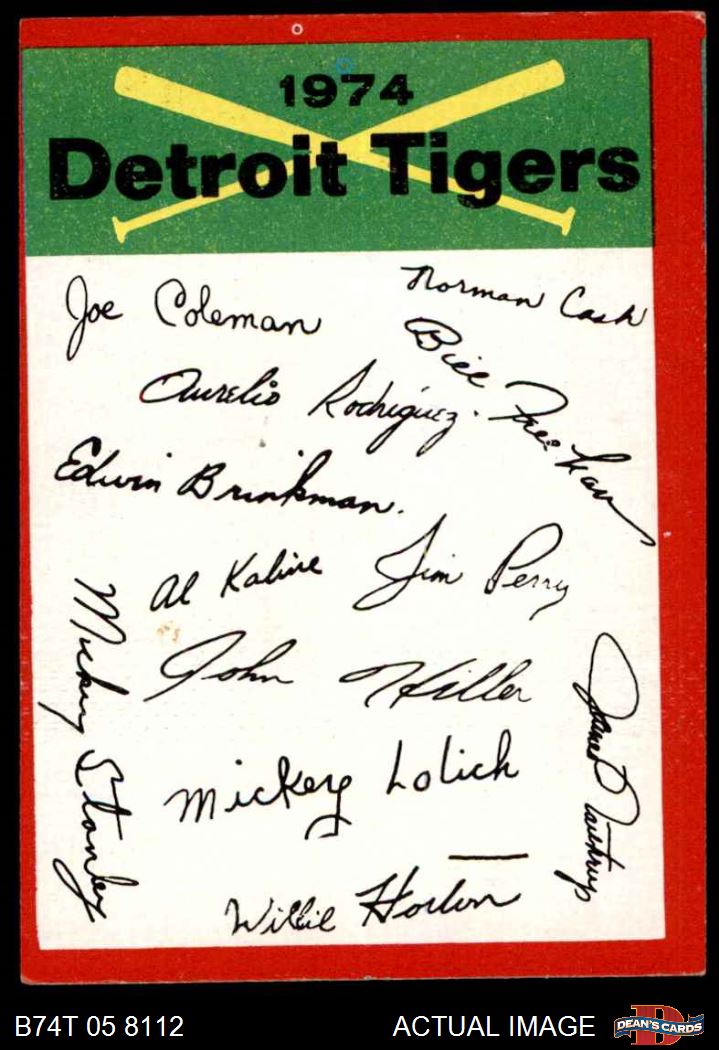 1974
Detroit Tigers
Joe Coleman
Norman Cash
Bill Freehan
Aurelio Rodriguez.
Edwin Brinkman.
Al Kaline
Jim Perry
Mickey Stanley
John Hiller
James Northrup
Mickey Lolich
Willie Horton
B74T 05 8112
ACTUAL IMAGE
D
DEAN'S CARDS